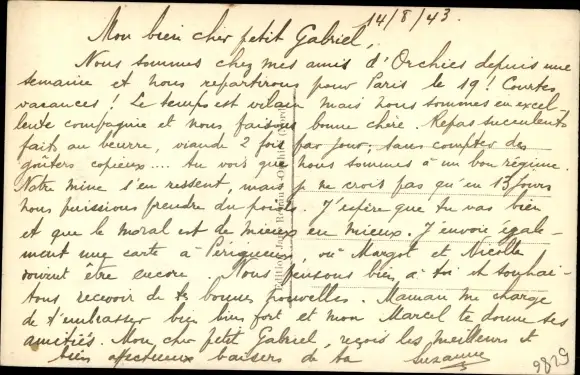 14/8/43.
Mon bien cher petit Gabriel,
Nous sommes chez mes amis d'Orchies depuis une
semaine et nous repartirons pour Paris le 19! Courtes
vacances! Le temps est vilain mais nous sommes en excel-
lente compagnie et nous faisons bonne chère. Repas succulents
faits au beurre, viande 2 fois par jour, sans compter des
goûters copieux.... tu vois que nous sommes à un bon régime.
Notre mine s'en ressent, mais je ne crois pas qu'en 15 jours
nous puissions prendre du poids. J'espère que tu vas bien
et que le moral est de mieux en mieux. J'envoie égale-
ment une carte à Périgueux, où Margot et Nicolle
doivent être encore. Nous pensons bien à toi et souhai-
tons recevoir de ts bonnes nouvelles. Maman me charge
de t'embrasser bien bien fort et mon Marcel te donne ses
amitiés. Mon cher petit Gabriel, reçois les meilleurs et
bien affectueux baisers de ta Suzanne
9829